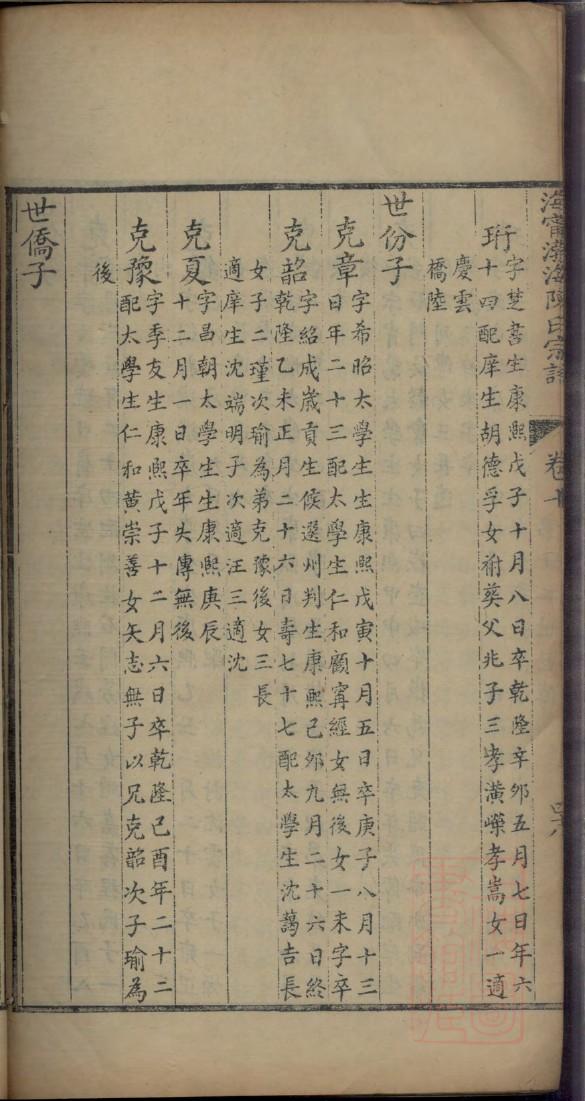 海甯渤海陳氏宗譜
卷十
珩
字楚書生康熙戊子十月八日卒乾隆辛夘五月七日年六
十四配庠生胡德孚女祔葬父兆子三孝潢嶫孝嵩女一適
慶雲
橋陸
世份子
克章
字希昭太學生生康熙戊寅十月五日卒庚子八月十三
日年二十三配太學生仁和顧甯經女無後女一未字卒
克韶
字紹成歲貢生候選州判生康熙己夘九月二十六日終
乾隆乙未正月二十六日壽七十七配太學生沈藹吉長
女子二瑾次瑜為弟克豫後女三長
適庠生沈端明子次適汪三適沈
克夏
字昌朝太學生生康熙庚辰
十二月一日卒年失傳無後
克豫
字季友生康熙戊子十二月六日卒乾隆己酉年二十二
配太學生仁和黃崇善女矢志無子以兄克韶次子瑜為
後
世僑子